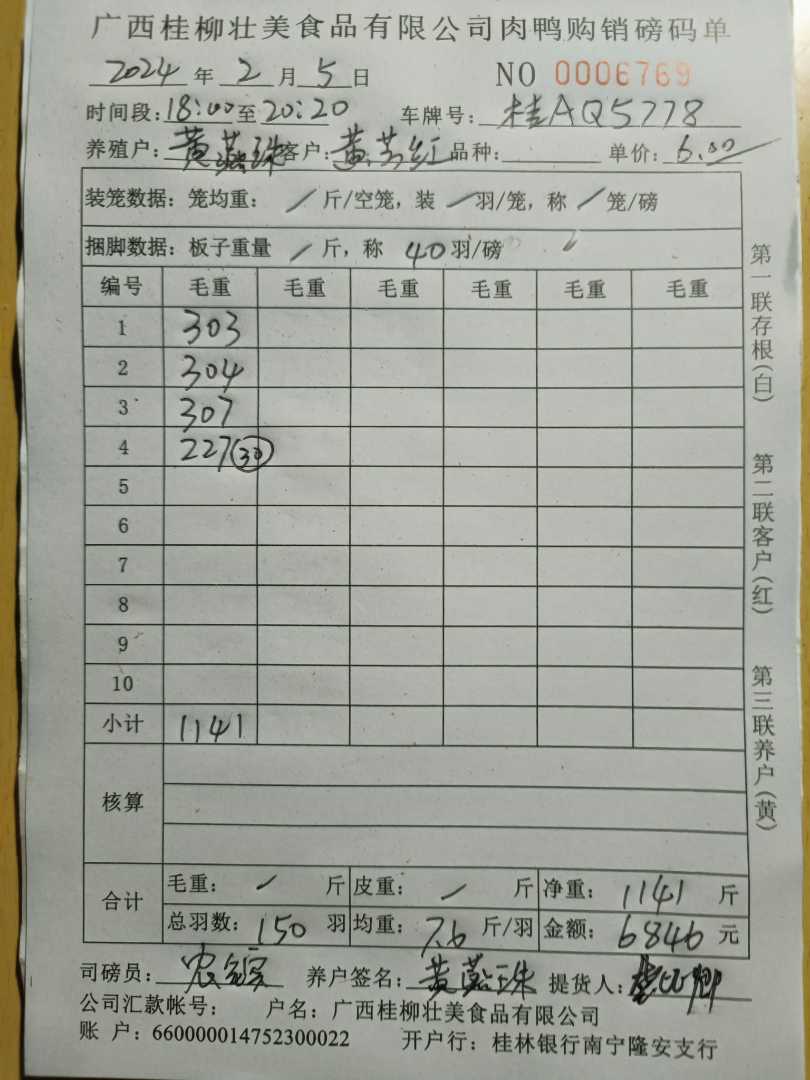 广西桂柳壮美食品有限公司肉鸭购销磅码单
2024 年 2 月 5 日 NO 0006769
时间段:18:00至20:20 车牌号:桂AQ5778
养殖户:黄燕珠 客户:黄红 品种: 单价:6.00
装笼数据:笼均重: / 斤/空笼,装 / 羽/笼,称 / 笼/磅
捆脚数据:板子重量 / 斤,称 40 羽/磅
编号 毛重 毛重 毛重 毛重 毛重 毛重
1 303
2 304
3 307
4 227 (30)
5
6
7
8
9
10
小计 1141
核算
合计 毛重: / 斤 皮重: / 斤 净重: 1141 斤
总羽数: 150 羽 均重: 7.6 斤/羽 金额: 6846 元
司磅员: 农 养户签名: 黄燕珠 提货人:
公司汇款帐号: 户名:广西桂柳壮美食品有限公司
账 户:660000014752300022 开户行:桂林银行南宁隆安支行
第一联存根(白)
第二联客户(红)
第三联养户(黄)